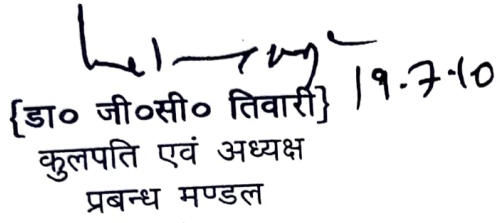 19.7.10
{डा० जी०सी० तिवारी}
कुलपति एवं अध्यक्ष
प्रबन्ध मण्डल